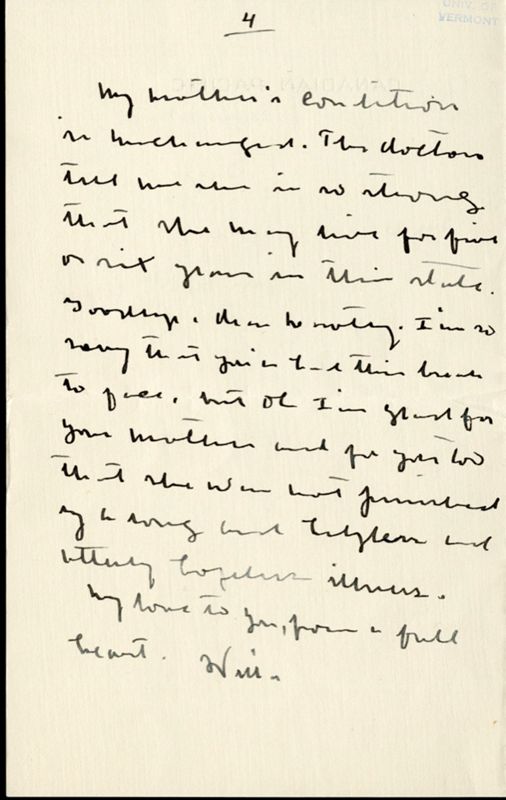 4
UNIV. OF
VERMONT
My mother's condition
is unchanged. The doctors
tell me she is so strong
that she may live for five
or six years in this state.
Goodbye, dear Dorothy. I'm so
sorry that you've had this break
to face, but oh I am glad for
your mother and for you too
that she was not punished
by a long and helpless and
utterly hopeless illness.
My love to you, from a full
heart. Willa